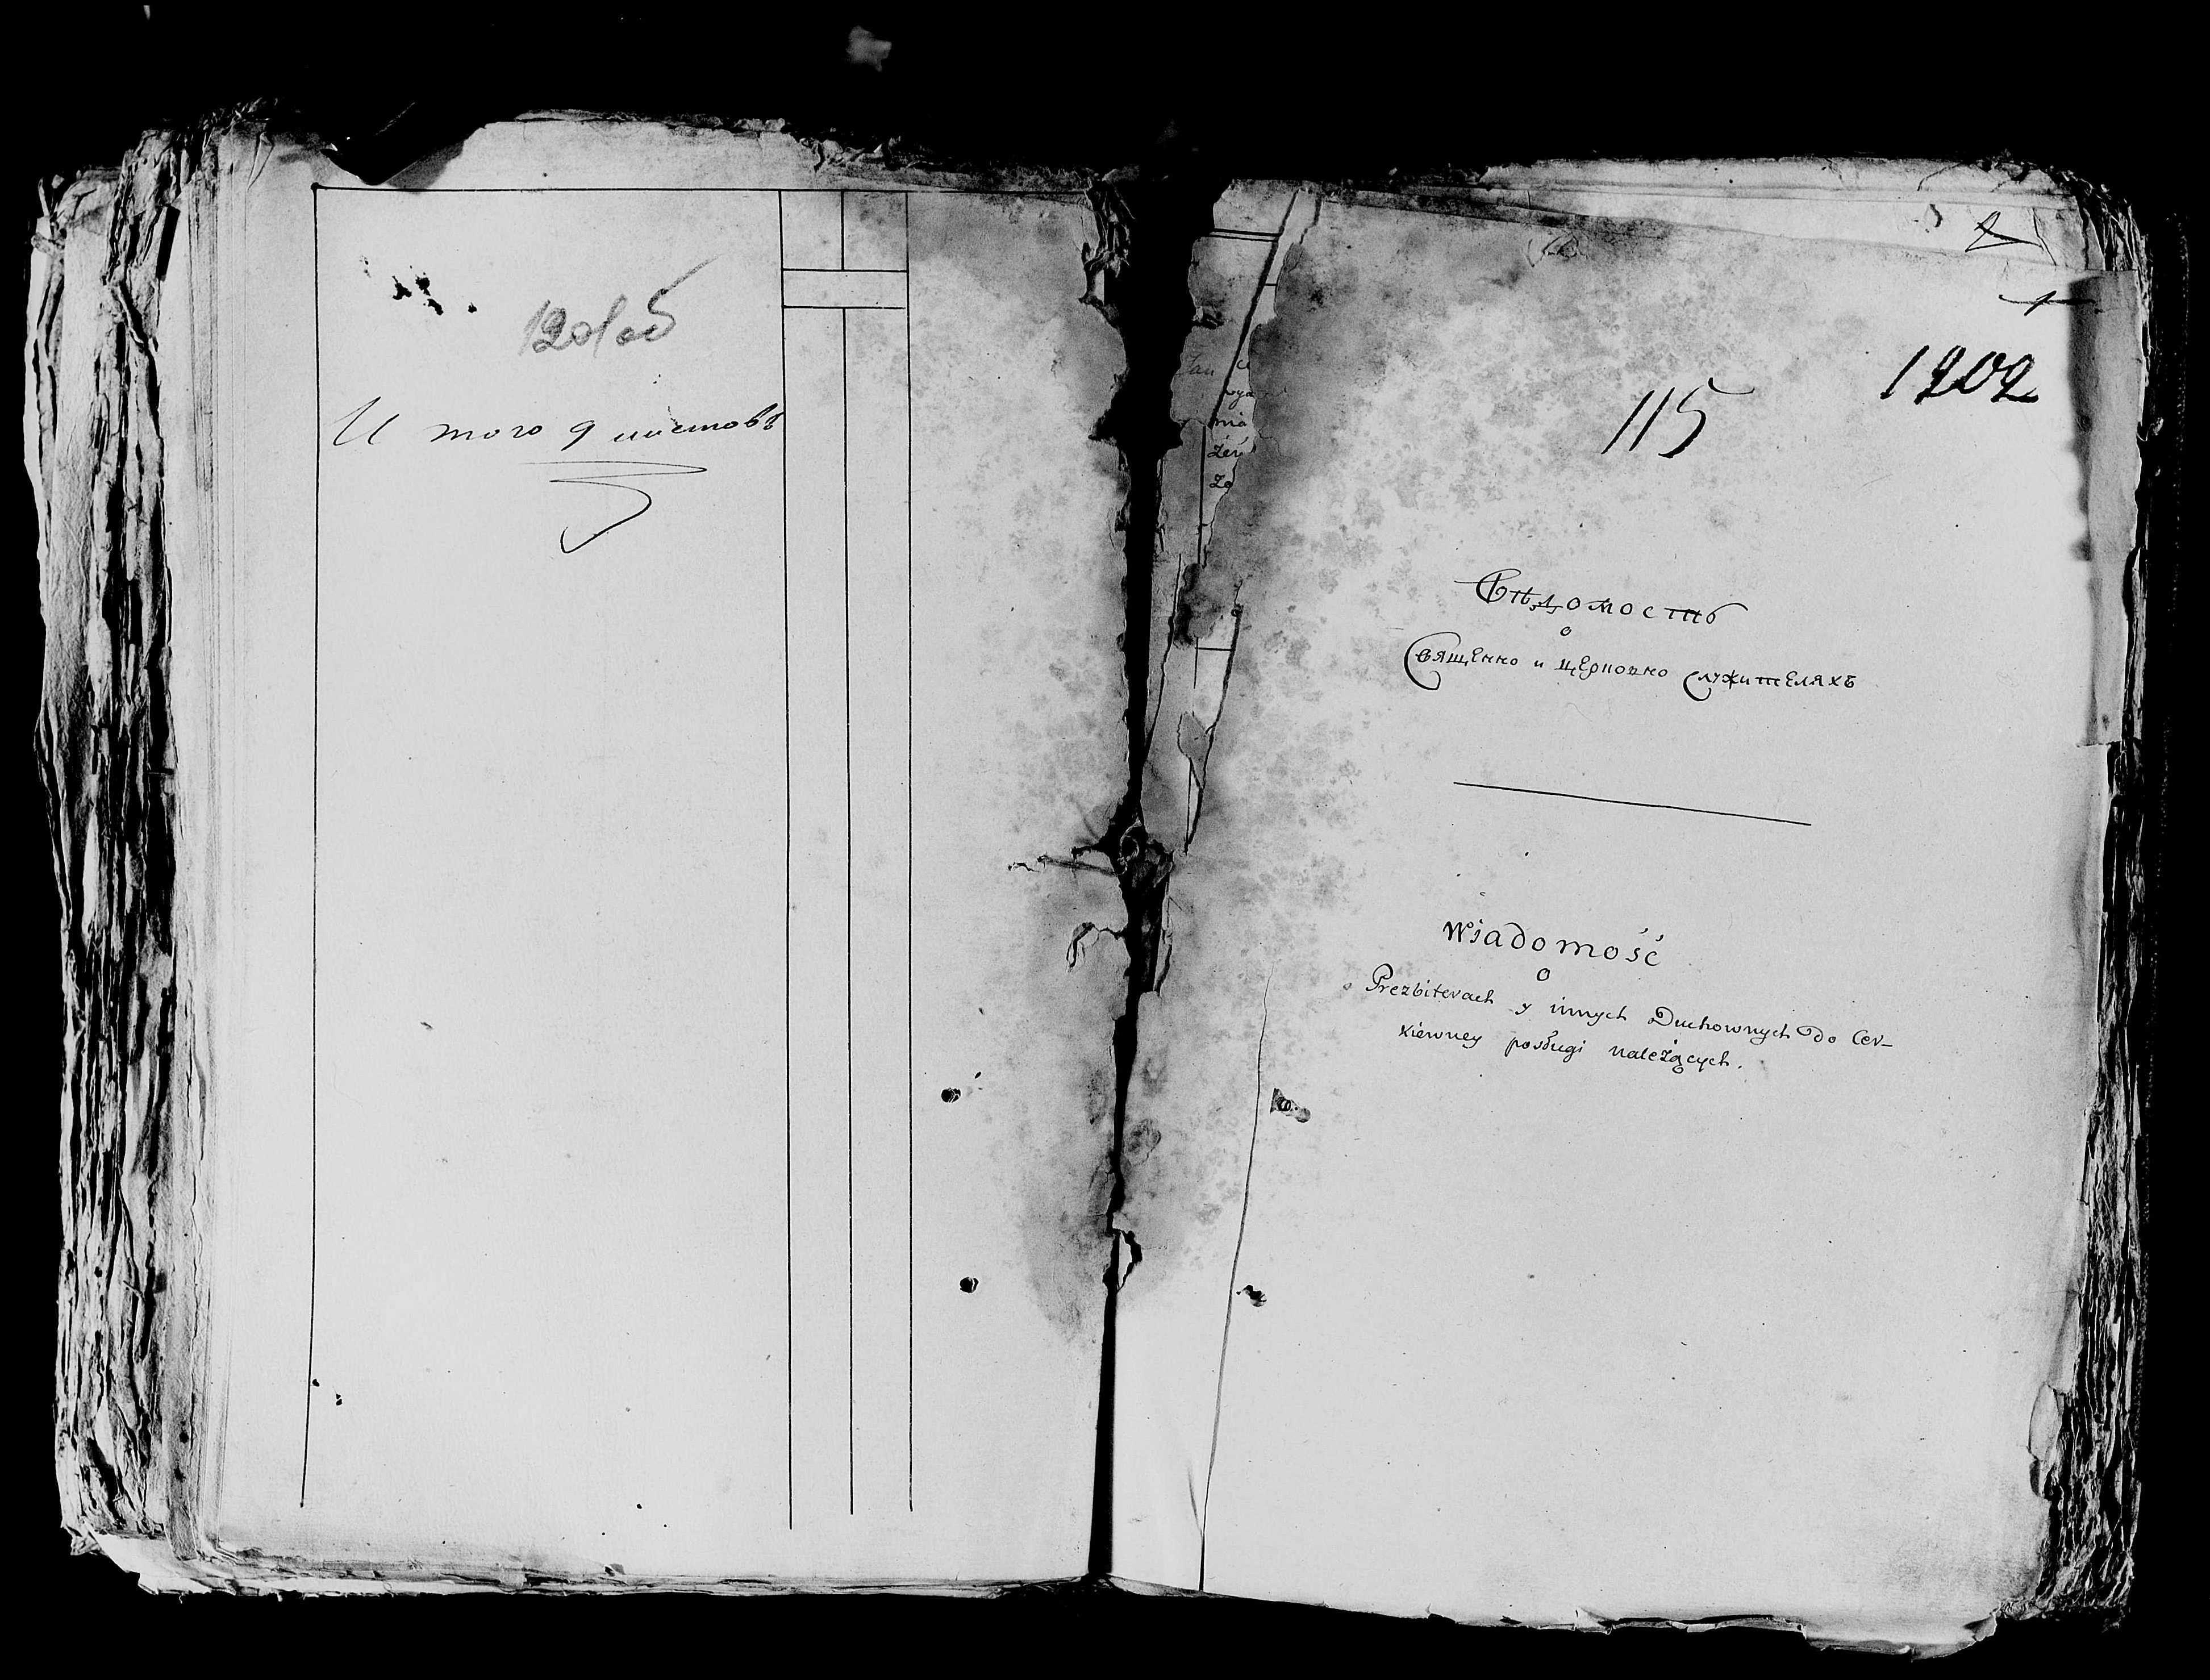 1201об
И того 9 листовъ
1202
115
Вѣдомость
о
Священно и церковно служителяхъ
Wiadomość
o
Prezbiterach y innych Duchownych do Cer-
kiewney posługi należących.